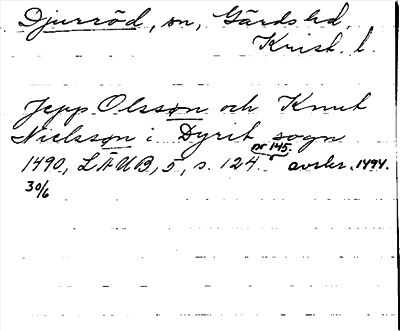 Djurröd, sn, Gärds hd,
Krist. l.
Jepp Olsson och Knut
Nielsson i Dyrit sogn
1490, LÄUB, 5, s. 124. nr 145. avskr. 1494.
30/6